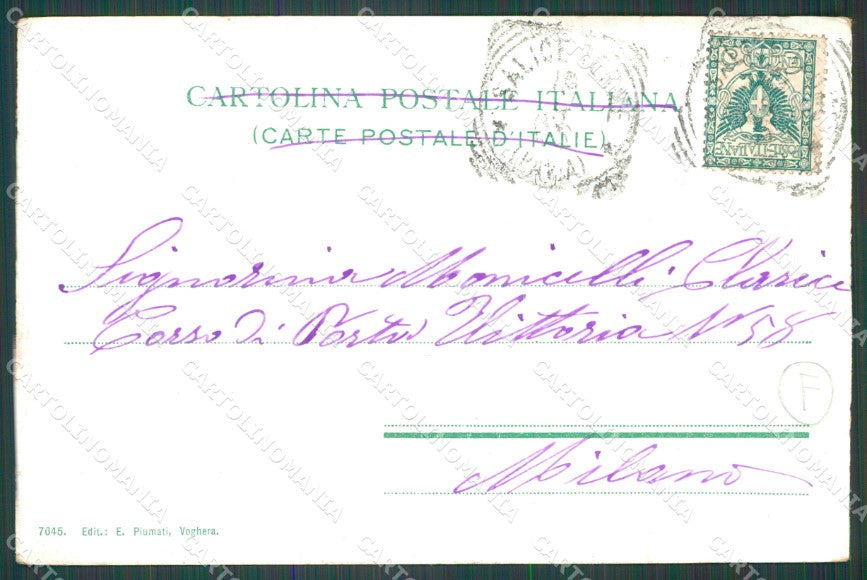 CARTOLINA POSTALE ITALIANA
(CARTE POSTALE D'ITALIE)
SALICE
(PAVIA)
POSTE ITALIANE
Signorina Monicelli Clarice
Corso Di Porta Vittoria N° 58
F
Milano
7645. Edit.: E. Piumati, Voghera.
CARTOLINOMANIA